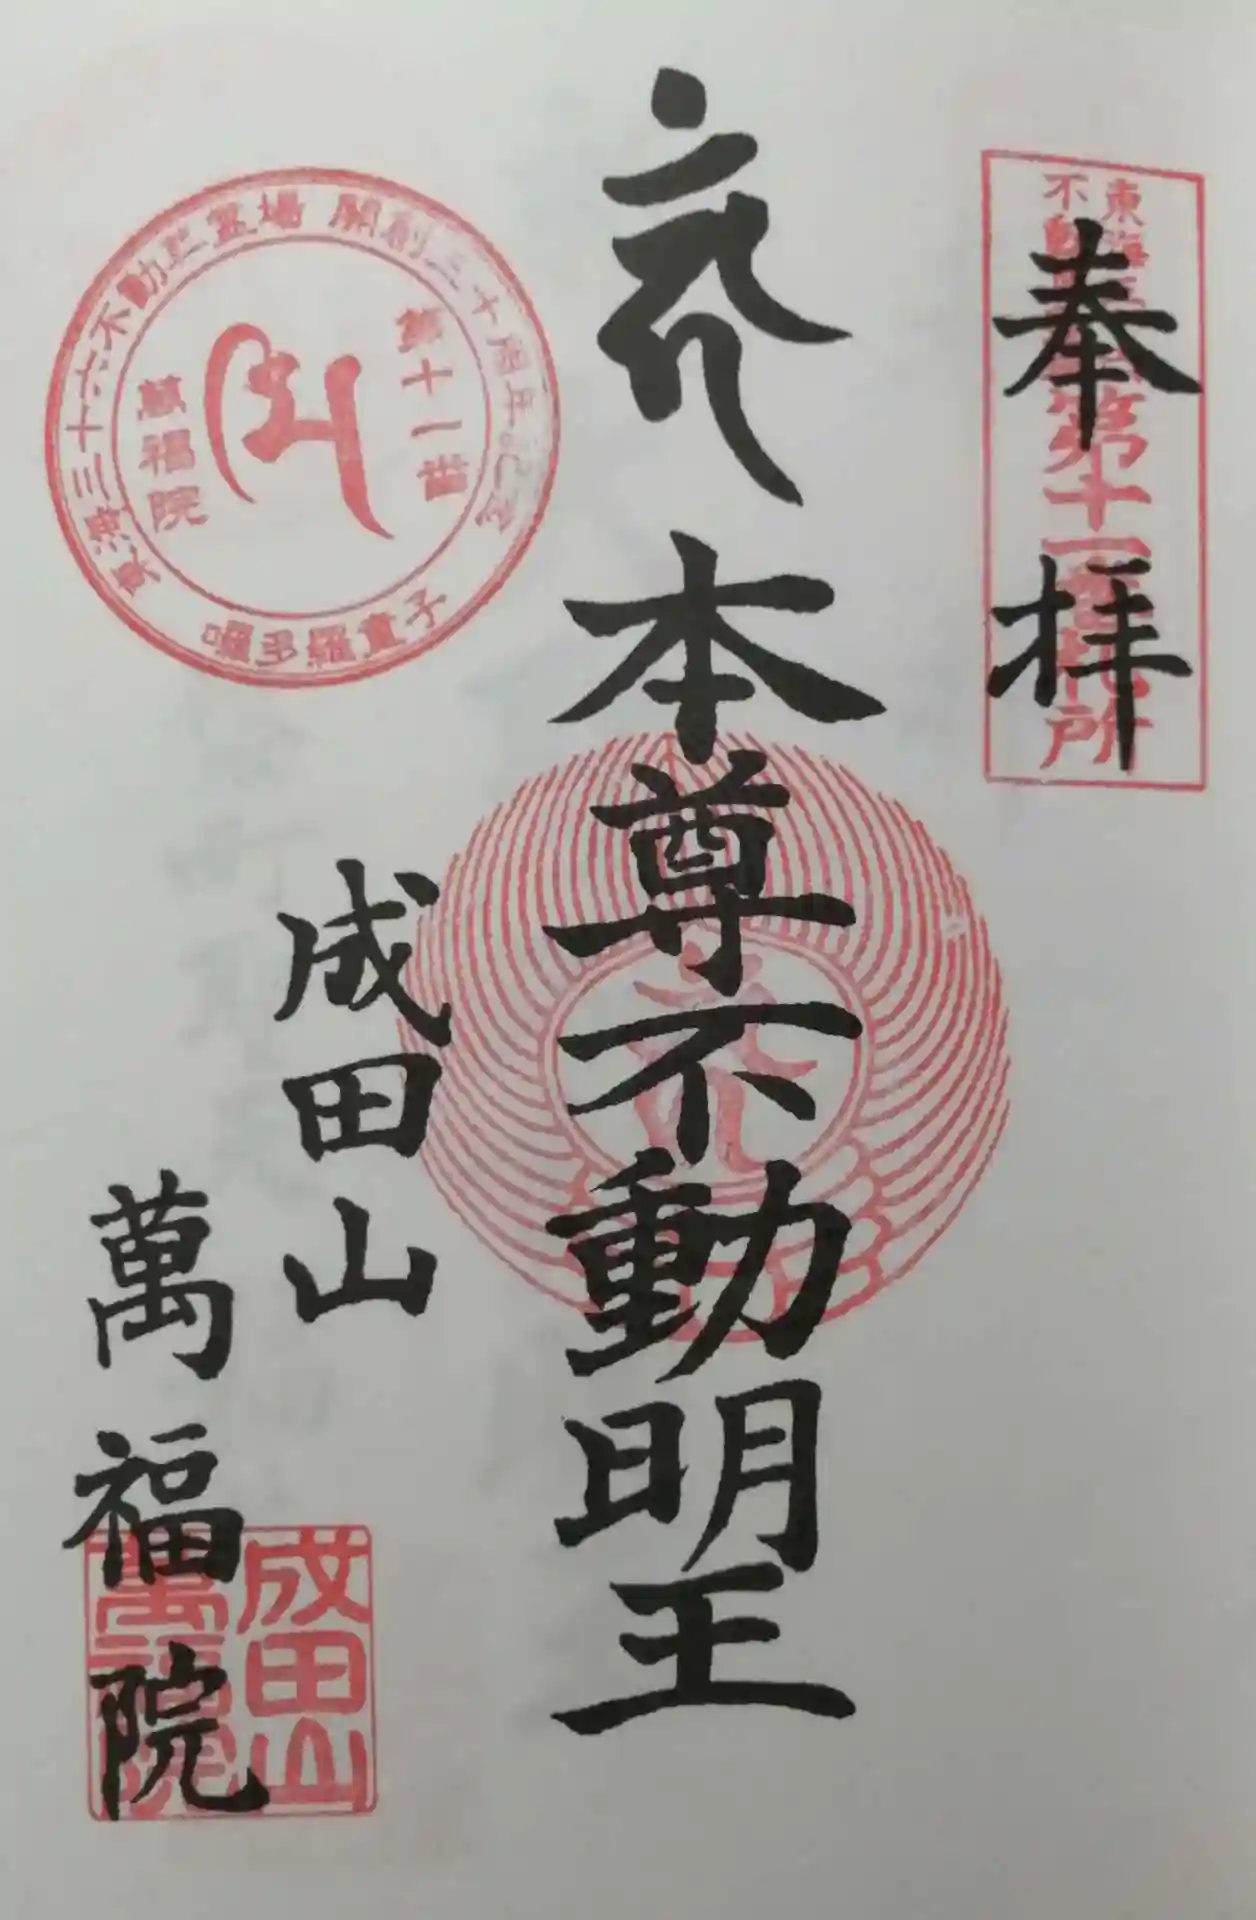 奉拝
東海三十六
不動尊霊場
第十一番札所
本尊不動明王
成田山
萬福院
東海三十六不動尊霊場 開創三十周年記念
第十一番
萬福院
囉多羅童子
成田山
萬福院